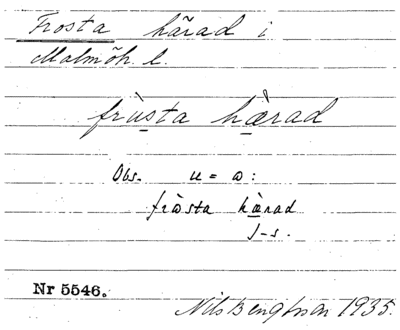 Frosta härad i
Malmöh. l.
frùsta hæ̀rad
Obs. u = ω:
frὼsta hæ̀rad
J-s.
Nr 5546.
Nils Bengtsson 1935.